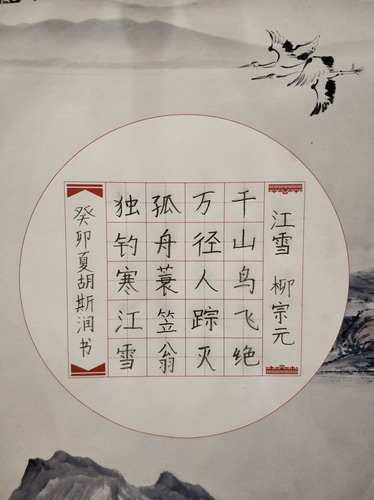 江雪 柳宗元
千山鸟飞绝
万径人踪灭
孤舟蓑笠翁
独钓寒江雪
癸卯夏胡斯润书